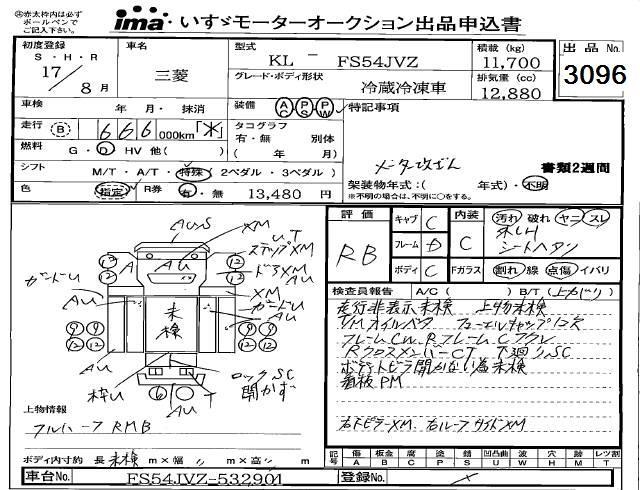 ④赤太枠内は必ず
ボールペンで
ご記入下さい。
ima いすゞモーターオークション出品申込書
初度登録
S・H・R
17/8月
車名
三菱
型式
KL-FS54JVZ
グレード・ボディ形状
冷蔵冷凍車
積載(kg)
11,700
排気量(cc)
12,880
出品 No.
3096
車検 年 月・抹消
装備 AC PS PW
特記事項
走行 B 666,000km「*」
タコグラフ
有・無 別体
( 年 月)
燃料 G・D・HV 他( )
メーター改ざん
書類2週間
シフト M/T・A/T・特殊(2ペダル・3ペダル)
架装物年式:( 年式)・不明
※不明の場合は、不明に○をする。
色 指定 R券 有・無 13,480円
評価
RB
キャブ C
フレーム D
ボディ C
内装 C
Fガラス
汚れ 破れ ヤニ スレ
シートヘタリ
割れ 線 点傷 イバリ
AUS
XM
UT
ステップXM
ドアXM
AU
ガードU
AU
A
AU
XM
ガードU
AU
未検
12
12
12
12
9
9
12
12
9
9
12
12
ロックSC
開かず
枠U
6
T
AU
検査員報告 A/C( ) B/T(上がり)
走行非表示未検 上物未検
TMオイルベタ フューエルキャップ欠
フレームCW RフレームCフクレ
RクロスメンバーCT 下廻りSC
ボデートビラ開かない為未検
看板PM
右トビラーXM 右ルーフサイドXM
上物情報
フルハーフ RMB
ボディ内寸約 長 未検 m×幅 m×高 m
記号 傷A 板金B 腐C 塗P 錆S 凹凸曲U 波W 穴H 跡M レンズ割T
車台No. FS54JVZ-532901
登録No.